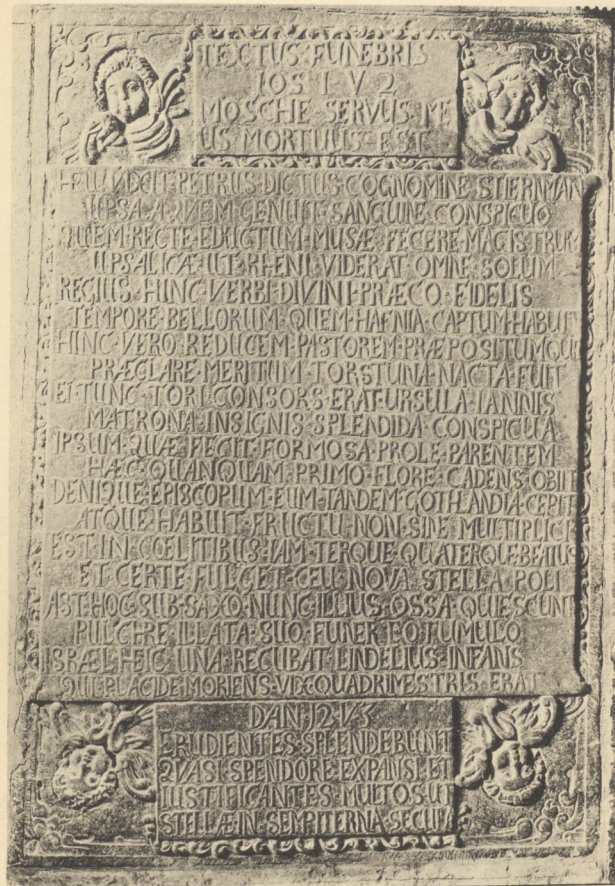 TEXTUS·FUNEBRIS
IOS I V 2
MOSCHE·SERVUS·ME
US MORTUUS·EST
PETRUS·DICTUS·COGNOMINE·STIERNMAN
UPSALA·QUEM GENUIT·SANGUINE CONSPICUO
QUEM·RECTE·EDUCTUM·MUSÆ·FECERE·MAGISTRUM
UPSALICÆ·UT·RHENI·VIDERAT·OMNE·SOLUM
REGIUS·HINC·VERBI·DIVINI·PRÆCO·FIDELIS
TEMPORE·BELLORUM·QUEM·HAFNIA·CAPTUM·HABUIT
HINC·VERO·REDUCEM·PASTOREM·PRÆPOSITUMQUE
PRÆCLARE·MERITUM·TORSTUNA·NACTA·FUIT
EI·TUNC·TORI·CONSORS·ERAT·URSULA·IANNIS
MATRONA·INSIGNIS·SPLENDIDA·CONSPICUA
IPSUM·QUÆ·FECIT·FORMOSA·PROLE·PARENTEM
HÆC·QUANQUAM·PRIMO·FLORE·CADENS·OBIIT
DENIQUE·EPISCOPUM·EUM·TANDEM·GOTHLANDIA·CEPIT
ATQUE·HABUIT·FRUCTU·NON·SINE·MULTIPLICI
EST·IN·CŒLITIBUS·IAM·TERQUE·QUATERQUE·BEATUS
ET·CERTE·FULGET·CEU·NOVA·STELLA·POLI
AST·HOC·SUB·SAXO·NUNC·ILLIUS·OSSA·QUIESCUNT
PULCHRE·ILLATA·SUO·FUNERE·TUMULO
ISRAEL·HEIC·UNA·RECUBAT·LINDELIUS·INFANS
QUI·PLACIDE·MORIENS·VIX·QUADRIMESTRIS·ERAT
DAN·12·V·3
ERUDIENTES·SPLENDEBUNT
QVASI·SPENDORE·EXPANSI·ET
IUSTIFICANTES·MULTOS·UT
STELLÆ·IN·SEMPITERNA·SECULA